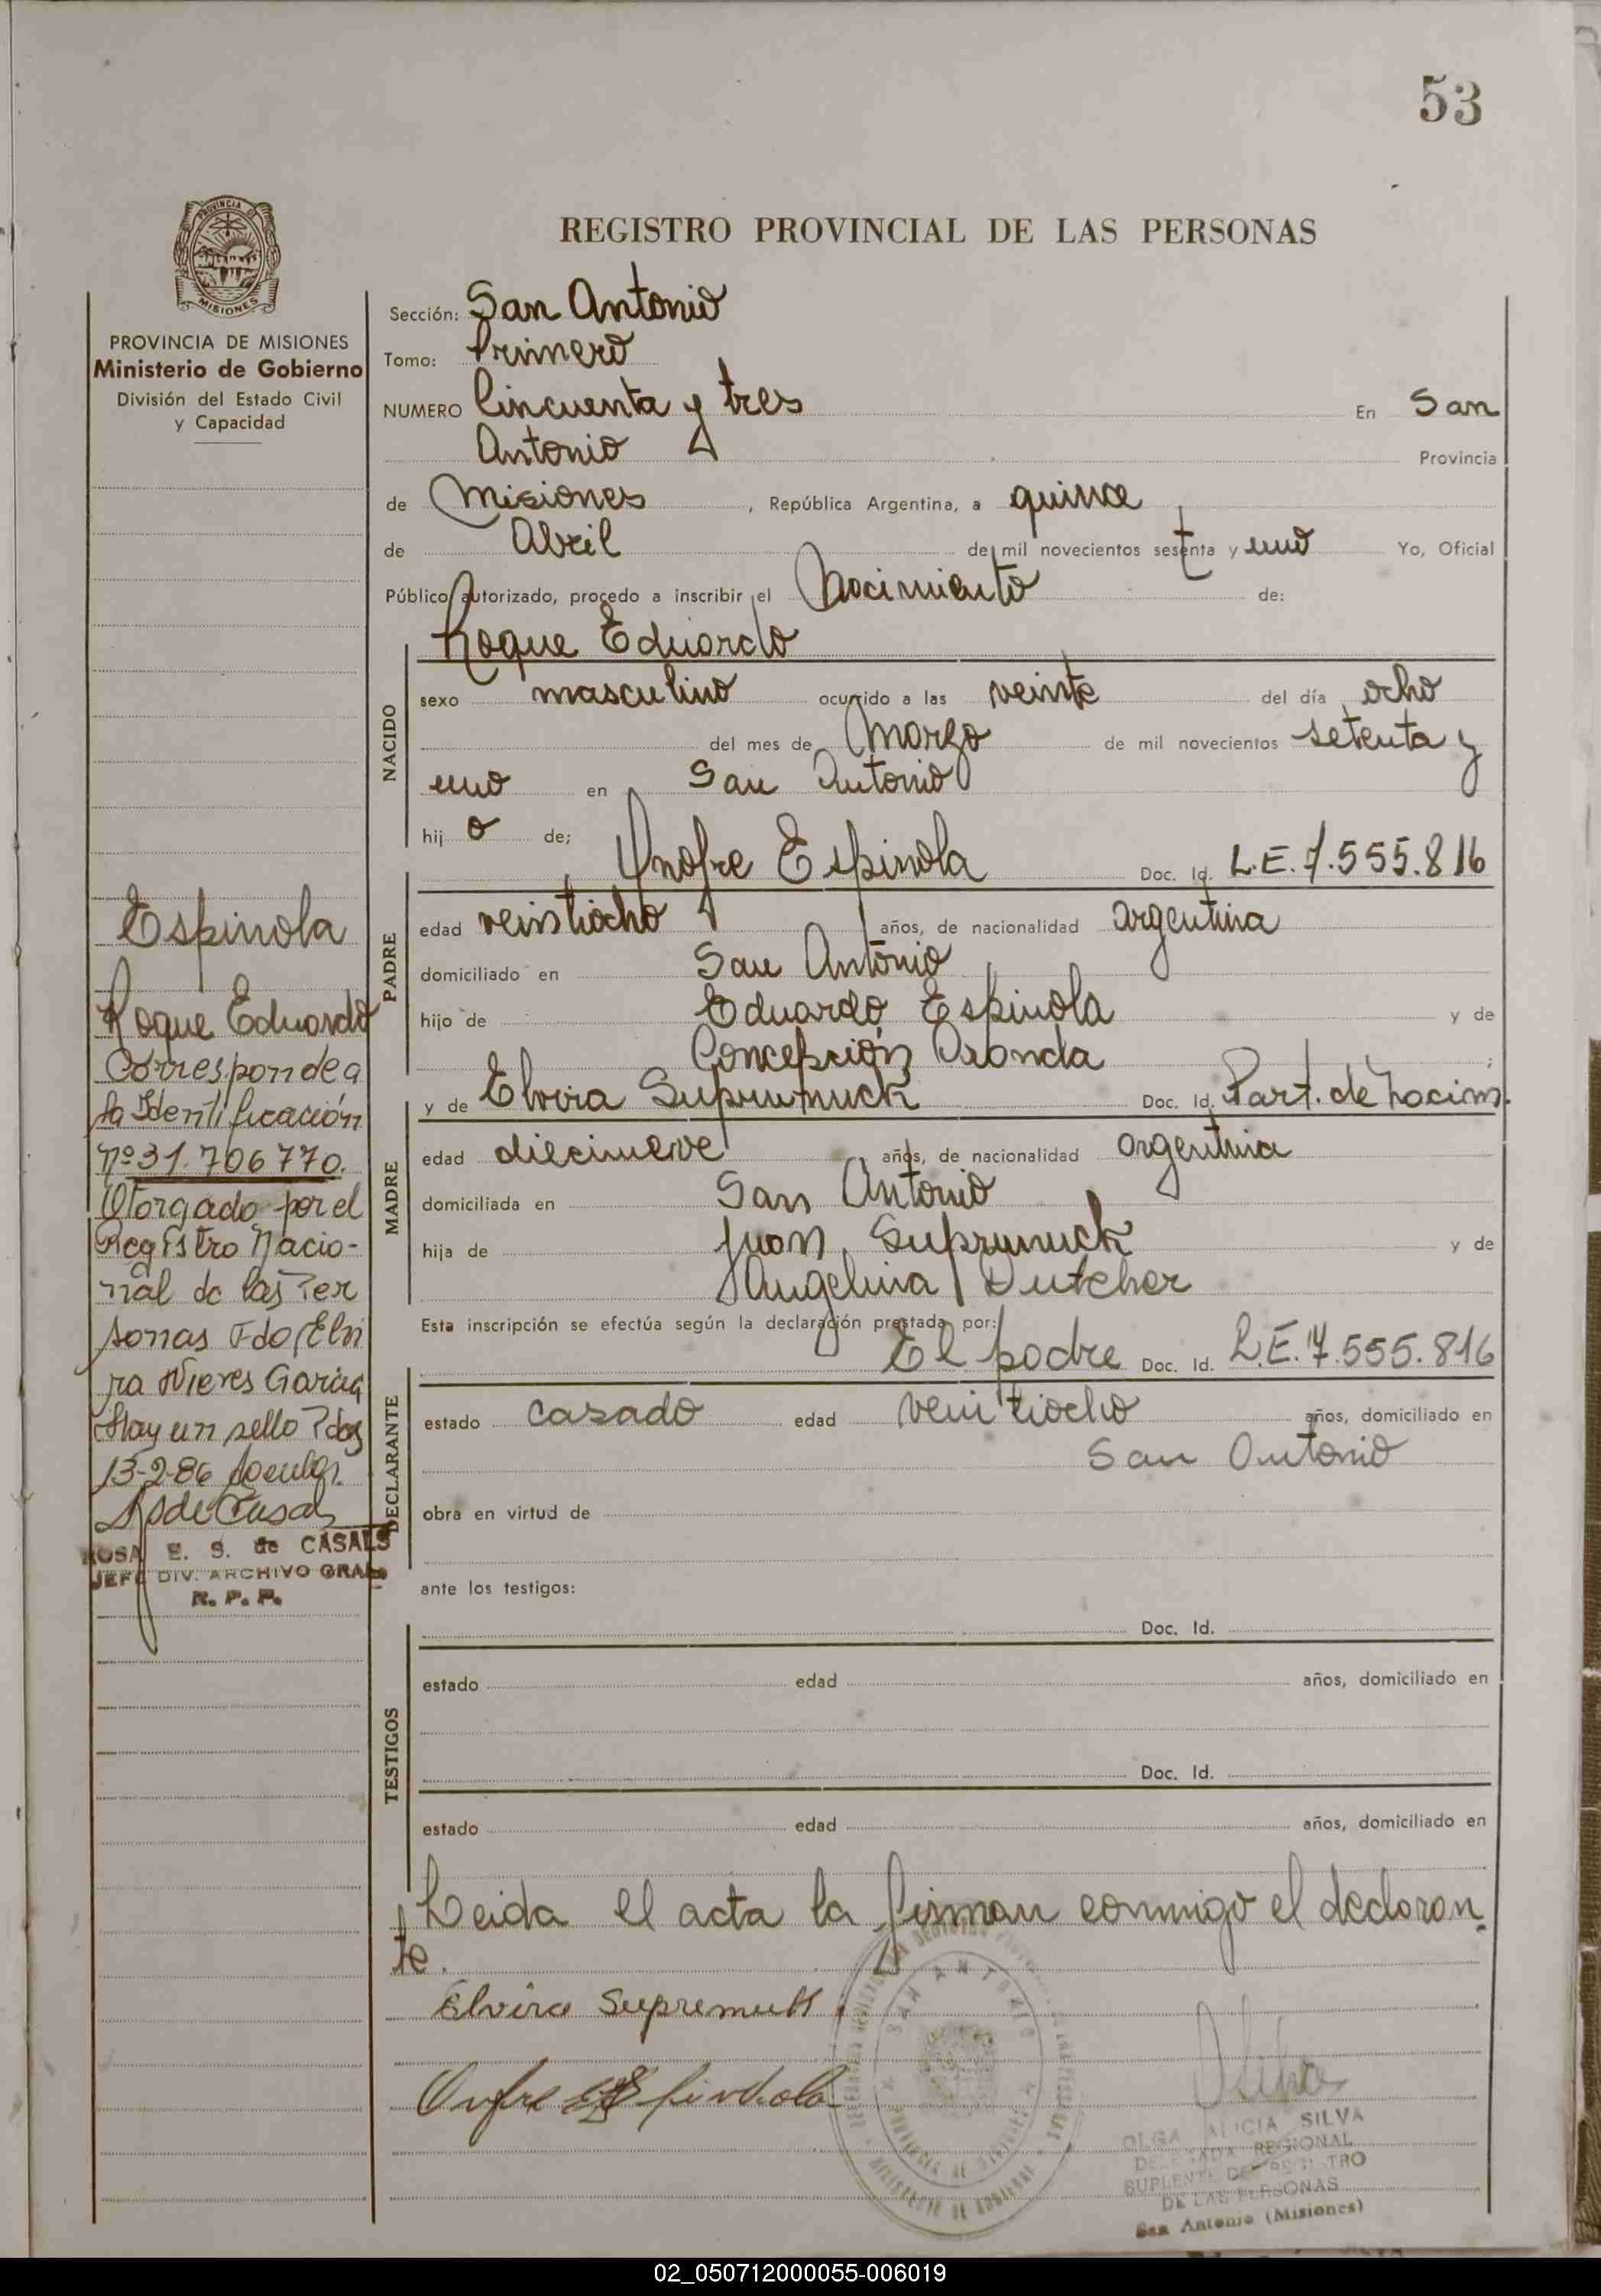 53
PROVINCIA DE
MISIONES
REGISTRO PROVINCIAL DE LAS PERSONAS
PROVINCIA DE MISIONES
Ministerio de Gobierno
División del Estado Civil
y Capacidad
Sección: San Antonio
Tomo: Primero
NUMERO Cincuenta y tres En San
Antonio Provincia
de Misiones, República Argentina, a quince
de Abril de mil novecientos sesenta y uno Yo, Oficial
Público autorizado, procedo a inscribir el Nacimiento de:
Roque Eduardo
NACIDO
sexo masculino ocurrido a las veinte del día ocho
del mes de Marzo de mil novecientos setenta y
uno en San Antonio
hijo de;
Onofre Espinola Doc. Id. L.E. 7.555.816
PADRE
edad veintiocho años, de nacionalidad argentina
domiciliado en San Antonio
hijo de Eduardo Espinola y de
Concepción ;
MADRE
y de Elvira Doc. Id. Part. de Nacim.
edad diecinueve años, de nacionalidad argentina
domiciliada en San Antonio
hija de Juan y de
Angelina
Esta inscripción se efectúa según la declaración prestada por:
El padre Doc. Id. L.E. 7.555.816
DECLARANTE
estado casado edad veintiocho años, domiciliado en
San Antonio
obra en virtud de
ante los testigos:
Doc. Id.
TESTIGOS
estado edad años, domiciliado en
Doc. Id.
estado edad años, domiciliado en
Leida el acta la firman conmigo el declaran-
te.
Elvira
Espinola
Roque Eduardo
Corresponde a
la Identificación
nº 31.706770.
Otorgado por el
Registro Nacio-
nal de las Per
sonas Fdo. Elvi
ra Nieves Garcia
Hay un sello Pdas
13-2-86
ROSA E. S. de CASALS
JEFE DIV. ARCHIVO GRAL.
R. P. P.
SAN ANTONIO
OLGA ALICIA SILVA
DELEGADA REGIONAL
SUPLENTE DEL REGISTRO
DE LAS PERSONAS
San Antonio (Misiones)
02_050712000055-006019